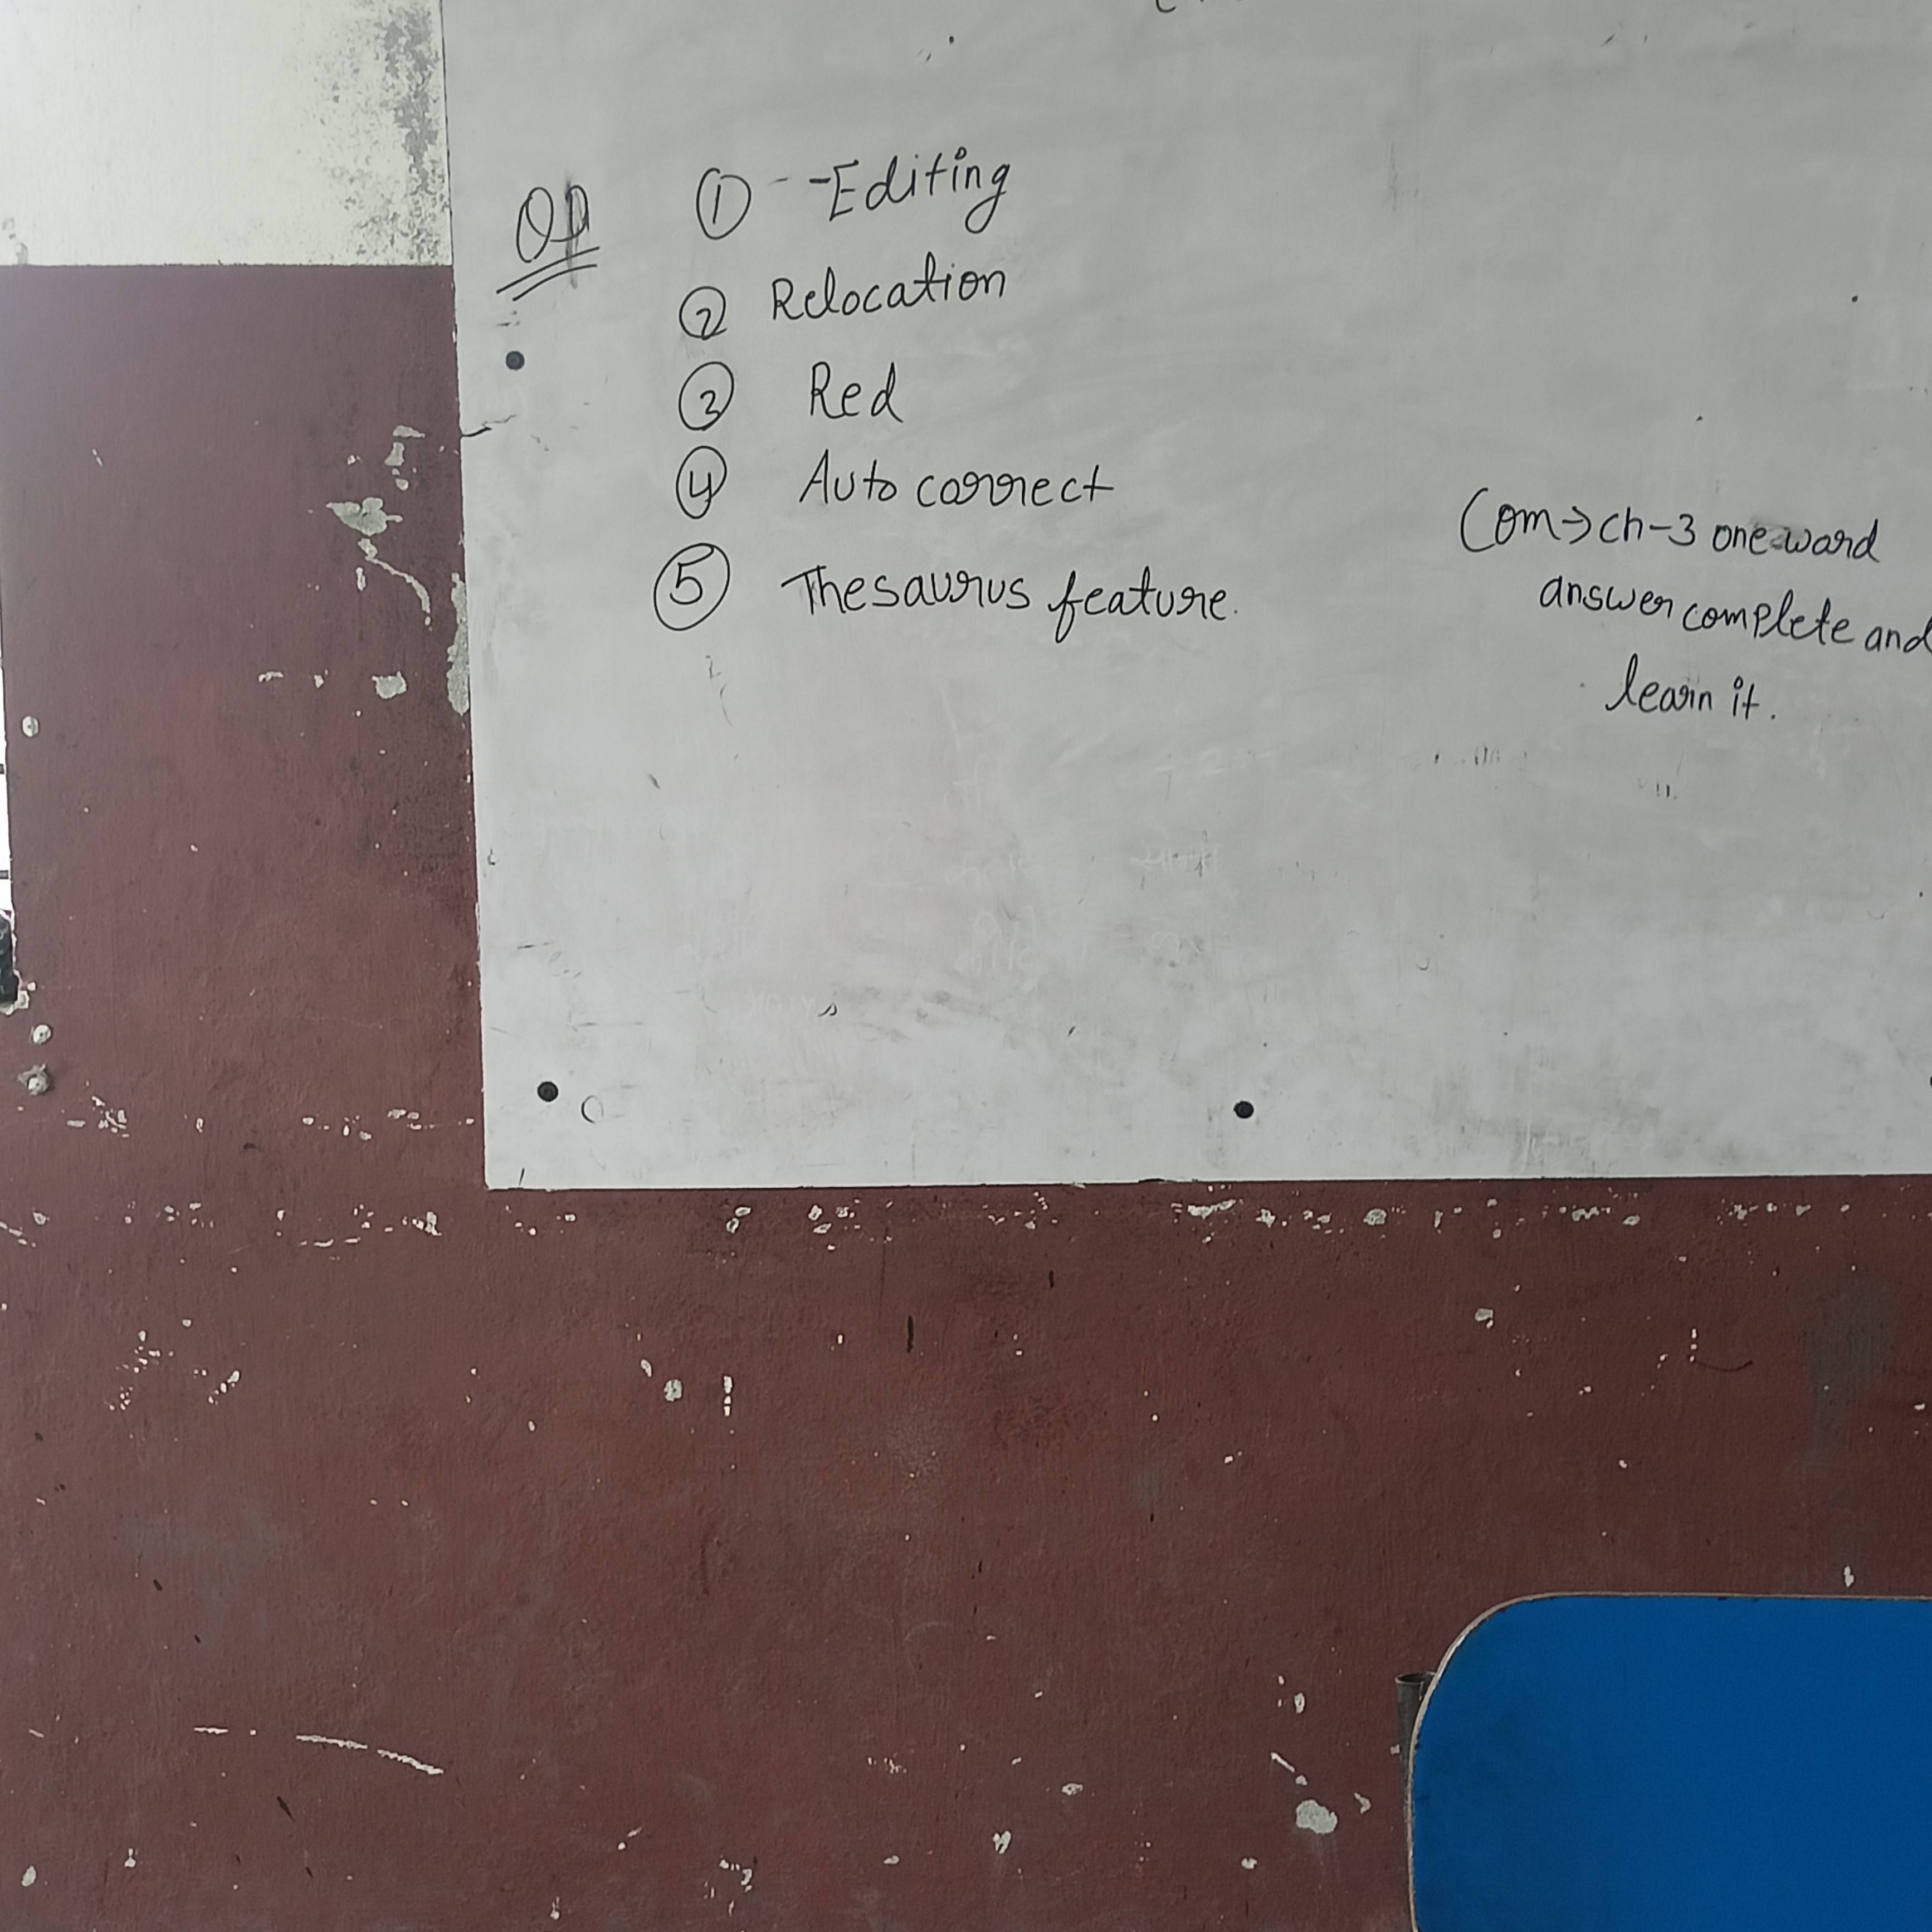 ① Editing
② Relocation
③ Red
④ Auto correct
⑤ Thesaurus feature.
Com → ch-3 one word
answer complete and
learn it.